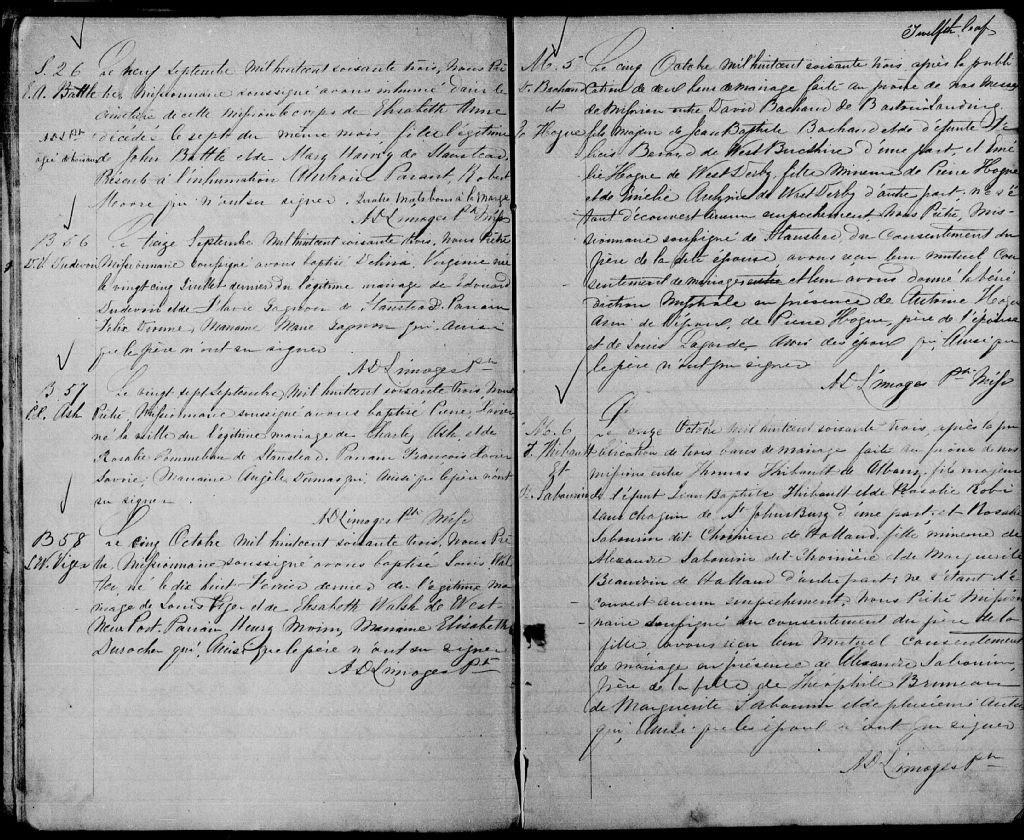 S. 26 Le neuf Septembre mil huit cent soixante trois, Nous Prê
E. A. Battle tre, Missionnaire soussigné avons inhumé dans le
cimetière de cette mission le corps de Elisabeth Anne
décédée le sept du même mois, fille légitime
de John Battle et de Mary Harvey de Stanstead.
Présents à l'inhumation Antoine Parent, Robert
Moore qui n'ont su signer. quatre mots bons à la marge
A D Limoges Ptr Miss
B 56 Le treize Septembre mil huit cent soixante trois, Nous Prêtre
D. V. Dudevoir Missionnaire soussigné avons baptisé Delina, Virginie née
le vingt cinq Juillet dernier du légitime mariage de Edouard
Dudevoir et de Flavie Gagnon de Stanstead. Parrain
Félix Marraine Marie Gagnon qui, ainsi
que le père n'ont su signer
A D Limoges Ptr
B 57 Le vingt sept Septembre mil huit cent soixante trois, nous
P. X. Ash Prêtre Missionnaire soussigné avons baptisé Pierre, Xavier
né la veille du légitime mariage de Charles Ash et de
Rosalie de Stanstead. Parrain François Xavier
Lavoie, Marraine Angèle qui, ainsi que le père n'ont
su signer
A D Limoges Ptr Miss
B 58 Le cinq Octobre mil huit cent soixante trois, Nous Prê
L. W. Viger tre, Missionnaire soussigné avons baptisé Louis, Wal
ter, né le dix huit Février dernier de légitime ma
riage de Louis Viger et de Elisabeth Walsh de West-
New Port. Parrain Henry Marraine Elisabeth
Durocher qui, ainsi que le père n'ont su signer
A D Limoges Ptr
Twelfth leaf
M. 5 Le cinq Octobre mil huit cent soixante trois après la publi
D. Bachand cation de deux bans de mariage faite au prône de nos messes
et de Mission entre David Bachand de Barton Landing
E. Hogue fils majeur de Jean Baptiste Bachand et de défunte
Berard de West Berkshire d'une part, et Emé
lie Hogue de West Derby, fille mineure de Pierre Hogue
et de Emélie de West Derby d'autre part, ne s'é
tant découvert aucun empêchement Nous Prêtre, Mis-
sionnaire soussigné de Stanstead, du consentement du
père de la dite épouse avons reçu leur mutuel con
sentement de mariage et leur avons donné la béné
diction nuptiale en présence de Antoine Hogue
Ami de l'époux, de Pierre Hogue, père de l'épouse
et de Louis Lagarde Amis des époux qui ainsi que
le père n'ont pu signer
A D Limoges Ptr Miss
M. 6 Le onze Octobre mil huit cent soixante trois, après la pu
T. Thibault blication de trois bans de mariage faite au prône de nos
Et missions entre Thomas Thibault de Albany, fils majeur
R. Sabourin de défunt Jean Baptiste Thibault et de Rosalie Robi
sans chagrin de St Johnsbury d'une part, et Rosalie
Sabourin dit Chonière de Holland, fille mineure de
Alexandre Sabourin dit Chonière et de Marguerite
Beaudoin de Holland d'autre part, ne s'étant dé
couvert aucun empêchement, Nous Prêtre Mission
naire soussigné du consentement du père de la
fille avons reçu leur mutuel consentement
de mariage en présence de Alexandre Sabourin,
père de la fille, de Théophile Bruneau
de Marguerite Sabourin et de plusieurs autres
qui, ainsi que les époux n'ont pu signer
A D Limoges Ptr